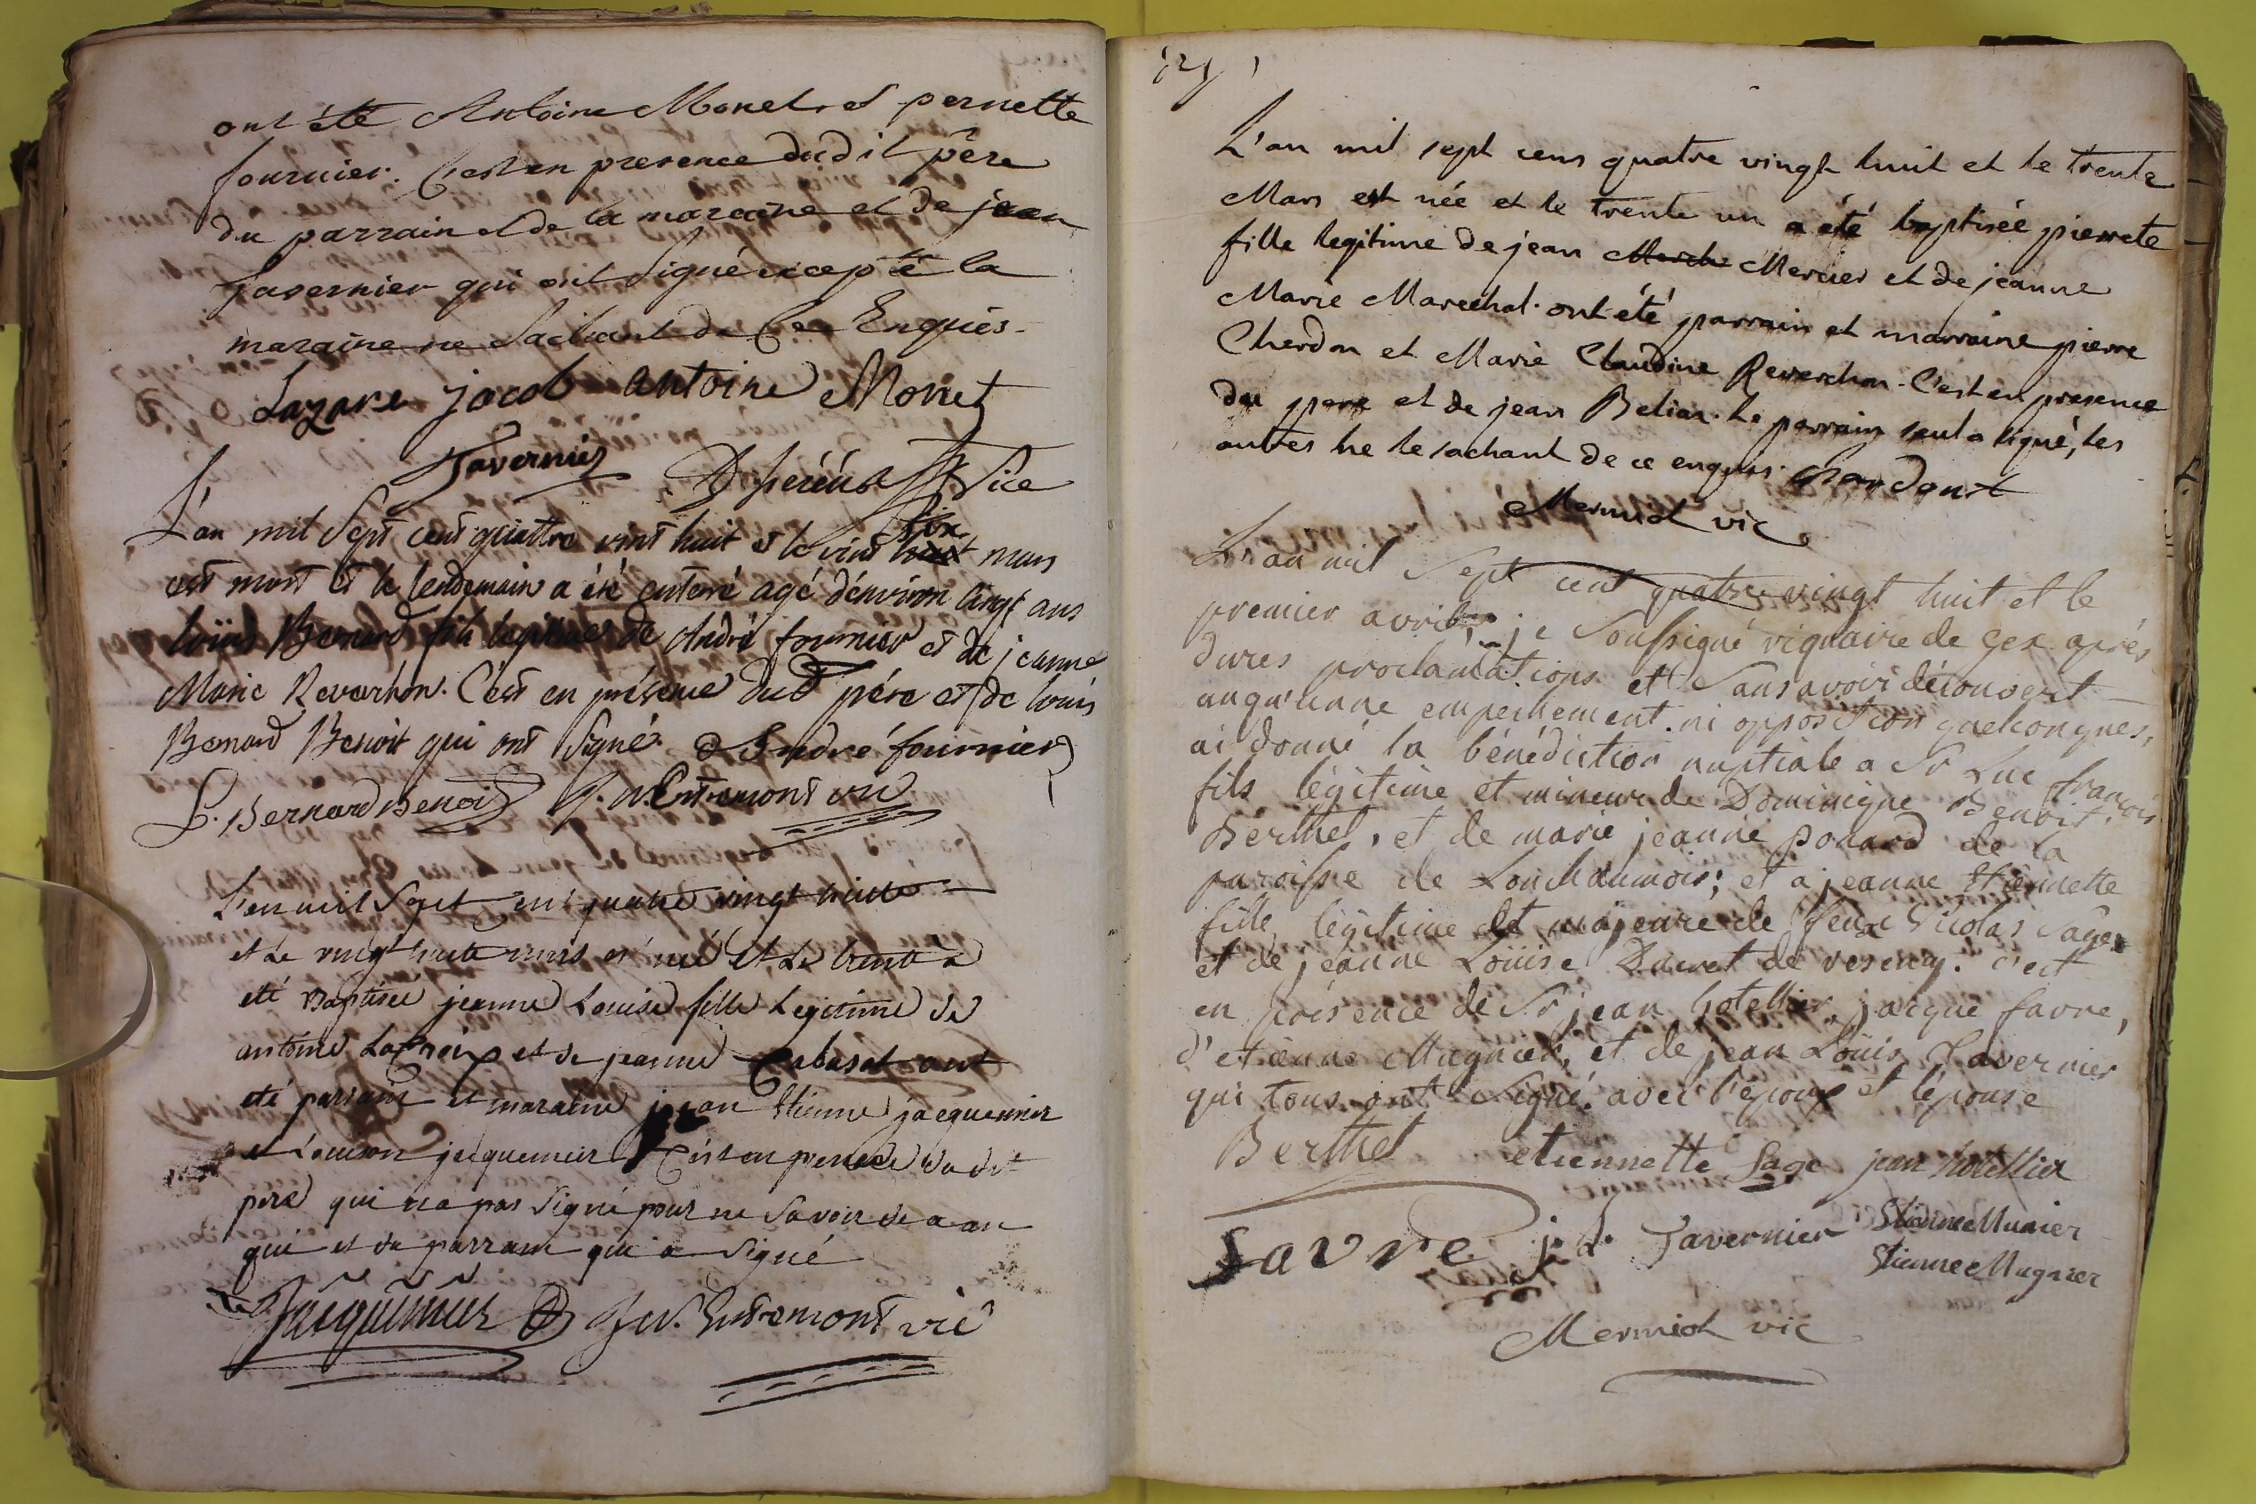 ont été Antoine Monet et pernette
fournier. C'est en presence dudit père
du parrain et de la maraine et de jean
Tavernier qui ont signé excepté la
maraine ne sachant de ce Enquis.
Lazare jacob antoine Monet
Tavernier Vice
L'an mil sept cent quattre vint huit et le vint six mars
est mort et le lendemain a été enterré agé d'environ cinq ans
loüis Bernard fils legitime de André fournier et de jeanne
Marie Reverchon. C'est en présence dud père et de louis
Bernard Benoit qui ont signé André fournier
L. Bernard Benoit J. N. Entremont vic
L'an mil sept cent quatre vingt huitte
et le vingt huite mars es née et le trente a
eté Baptisée jeanne Louise fille Legitime de
antoine Lacroix et de jeanne Cabasat ont
eté parrain et maraine jean Etienne jacquemier
et Louison jacquemier C'est en presence dudit
pere qui n'a pas signé pour ne savoir de a an
qui et du parrain qui a signé
Jacquemier J. N. Entremont vic
L'an mil sept cens quatre vingt huit et le trente
Mars est née et le trente un a été baptisée pierrete
fille legitime de jean Mercier et de jeanne
Marie Marechal. ont été parrain et marraine pierre
Chardon et Marie Claudine Reverchon. C'est en presence
du pere et de jean Belian. Le parrain seul a signé, les
autres ne le sachant de ce enquis. Chardont
Mermet vic
L'an mil sept cent quatre vingt huit et le
premier avril, je soussigné viquaire de Gex après
dures proclamations et sans avoir découvert
auqu'unne empechement ni opposition quelconques,
ai donné la bénédiction nuptiale a Sr Luc françois
fils légitime et mineur de Dominique Benoit
Berthet, et de marie jeanne ponard de la
paroisse de Lonchaumois; et a jeanne Etiennette
fille légitime et majeure de feux Nicolas Sage
et de jeanne Loüise Ducret de vesency. C'est
en présence de Sr jean hotellier, jacque favre,
d'etienne Magnier, et de jean Loüis Tavernier
qui tous ont signé avec l'epoux et lépouse
Berthet etiennette Sage jean hotellier
Favre j. L. Tavernier Etienne Munier
Etienne Magnier
Mermet vic